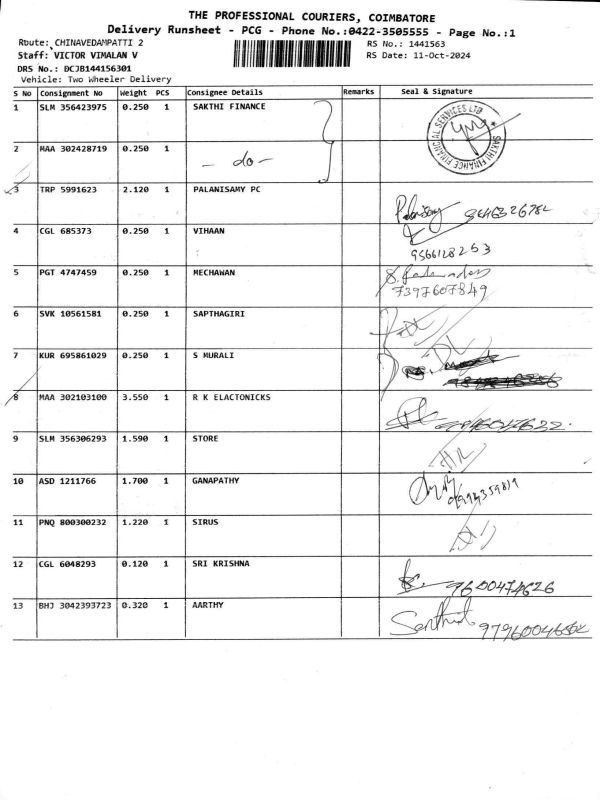 THE PROFESSIONAL COURIERS, COIMBATORE
Delivery Runsheet - PCG - Phone No.:0422-3505555 - Page No.:1
Route: CHINAVEDAMPATTI 2 RS No.: 1441563
Staff: VICTOR VIMALAN V RS Date: 11-Oct-2024
DRS No.: DCJB144156301
Vehicle: Two Wheeler Delivery
S No Consignment No Weight PCS Consignee Details Remarks Seal & Signature
1 SLM 356423975 0.250 1 SAKTHI FINANCE
SAKTHI FINANCE FINANCIAL SERVICES LTD
2 MAA 302428719 0.250 1 - do -
3 TRP 5991623 2.120 1 PALANISAMY PC
4 CGL 685373 0.250 1 VIHAAN
9566128263
5 PGT 4747459 0.250 1 MECHAWAN
7397607849
6 SVK 10561581 0.250 1 SAPTHAGIRI
7 KUR 695861029 0.250 1 S MURALI
8 MAA 302103100 3.550 1 R K ELACTONICKS
9 SLM 356306293 1.590 1 STORE
10 ASD 1211766 1.700 1 GANAPATHY
11 PNQ 800300232 1.220 1 SIRUS
12 CGL 6048293 0.120 1 SRI KRISHNA
9600474626
13 BHJ 3042393723 0.320 1 AARTHY